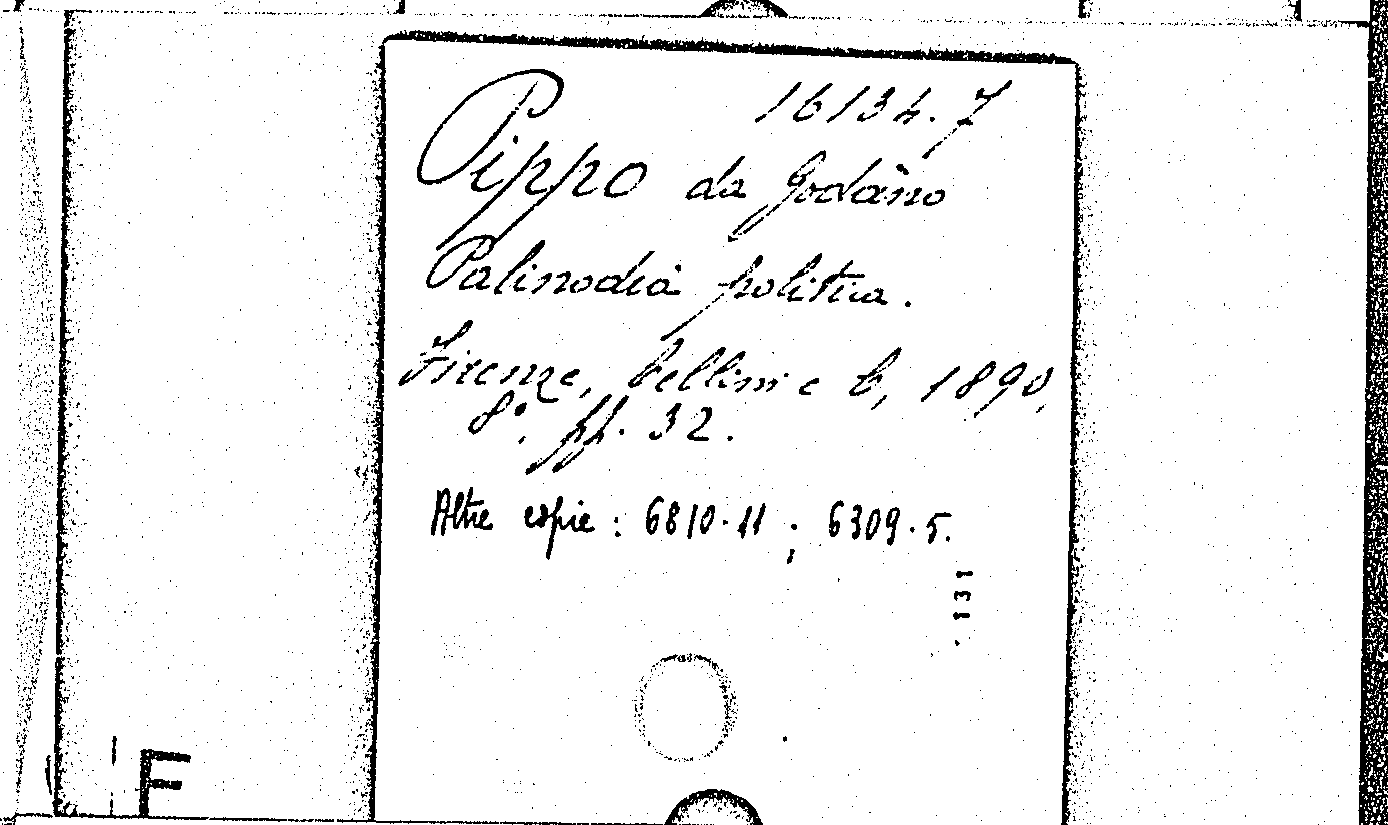 16134.7
Pippo da Godano
Palinodia politica.
Firenze, Cellini e C, 1890,
8°. pp. 32.
Altre copie: 6810.11; 6309.5.
131
F